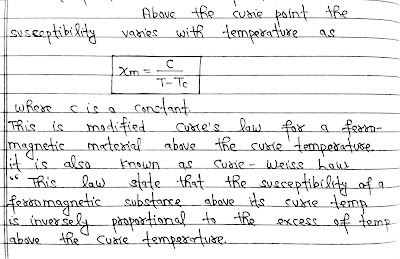 Above the curie point the
susceptibility varies with temperature as
χm = C / T - Tc
where c is a constant.
This is modified curie's law for a ferro-
magnetic material above the curie temperature.
it is also known as curie - weiss Law
" This law state that the susceptibility of a
ferromagnetic substance above its curie temp
is inversely proportional to the excess of temp
above the curie temperature.